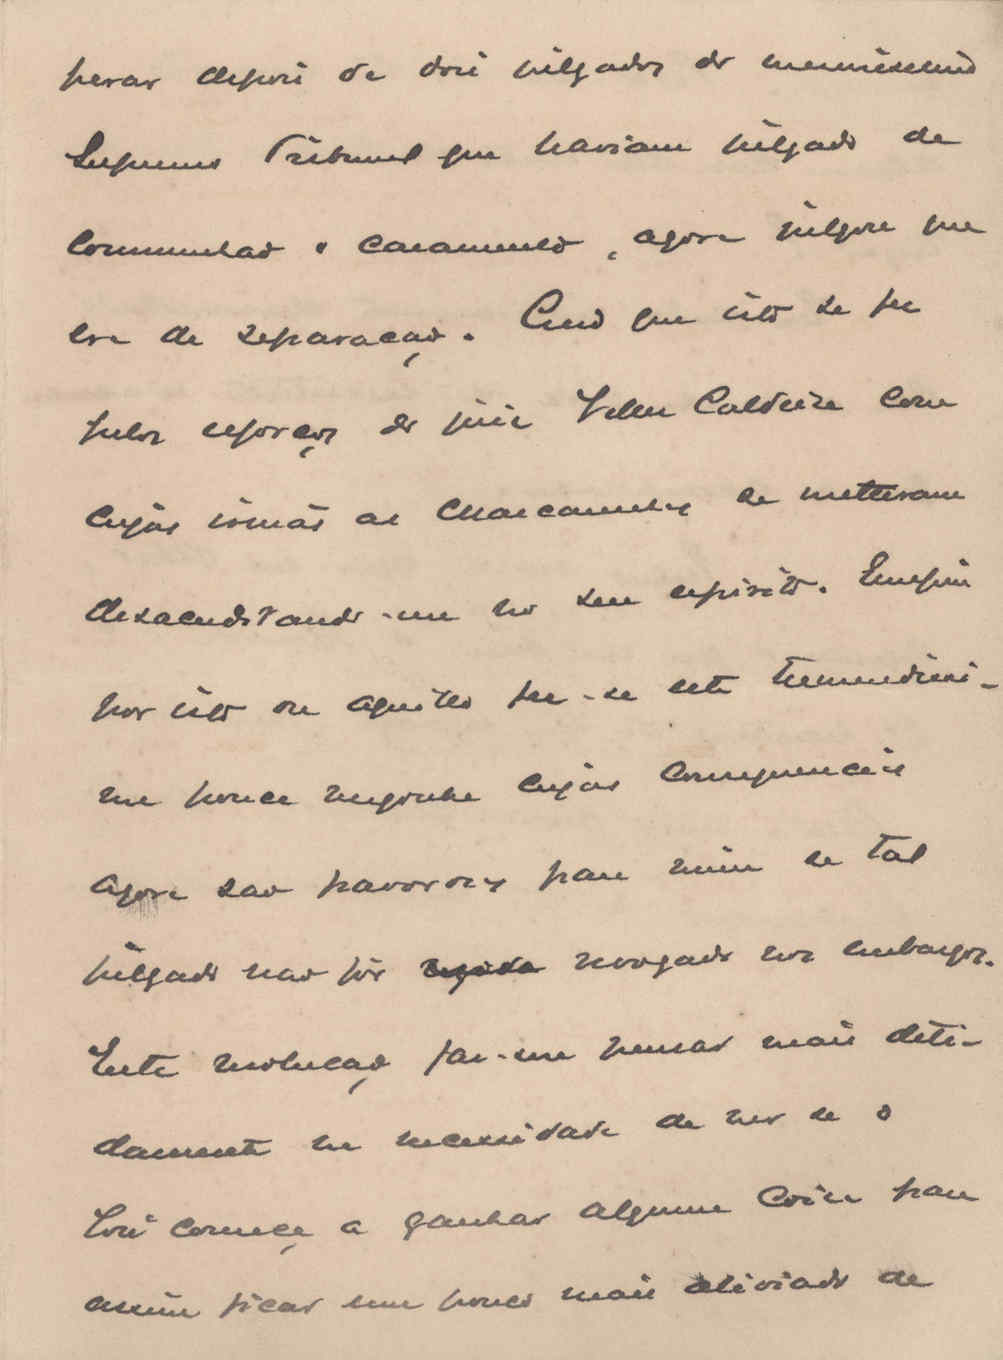 perar depois de dois julgados do mesmissimo
Supremo Tribunal que haviam julgado de
communhão o casamento, agora julgou que
era de separação. Creio que isto se fez
pelos esforços do juiz Caldeira com
cujas irmãs as se metteram
desacreditando-me no seu espirito. Emfim
por isto ou aquillo fez-se esta tremendissi-
ma pouca vergonha cujas consequencias
agora são pavorosas para mim se tal
julgado não fôr revogado nos embargos.
Esta resolução faz-me pensar mais deti-
damente na necessidade de ver se o
começa a ganhar alguma coisa para
assim ficar um pouco mais alliviado de